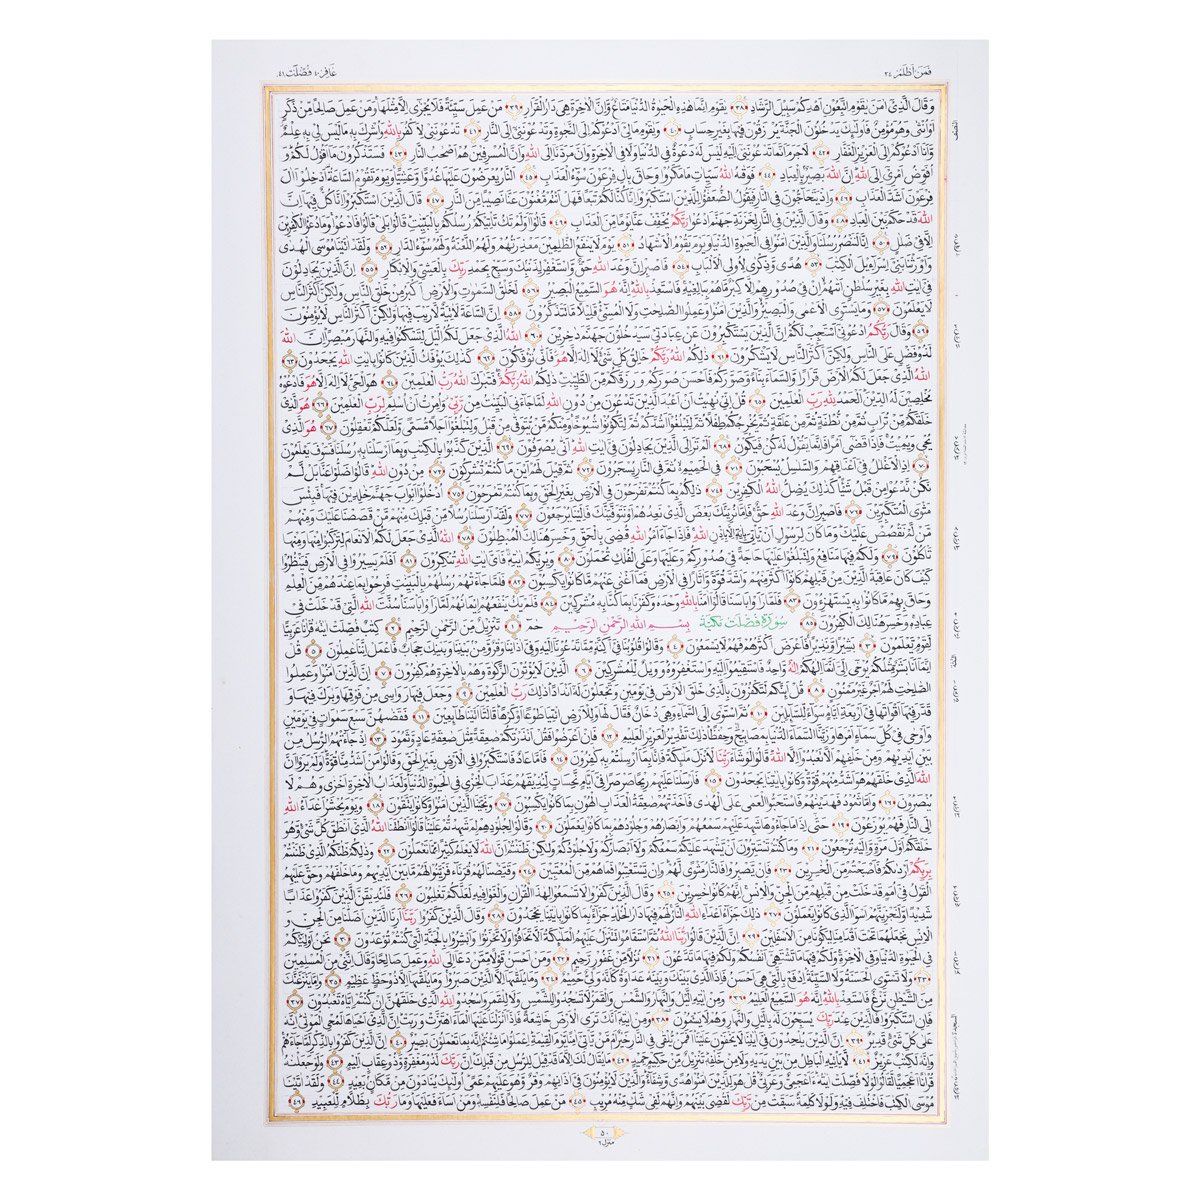 فمن اظلم ٢٤
غافر ٤٠ فصلت ٤١
وقال الذي امن يقوم اتبعون اهدكم سبيل الرشاد ﴿٣٨﴾ يقوم انما هذه الحيوة الدنيا متاع وان الاخرة هي دار القرار ﴿٣٩﴾ من عمل سيئة فلا يجزى الا مثلها ومن عمل صالحا من ذكر
او انثى وهو مؤمن فاولئك يدخلون الجنة يرزقون فيها بغير حساب ﴿٤٠﴾ ويقوم مالي ادعوكم الى النجوة وتدعونني الى النار ﴿٤١﴾ تدعونني لاكفر بالله واشرك به ما ليس لي به علم
وانا ادعوكم الى العزيز الغفار ﴿٤٢﴾ لا جرم انما تدعونني اليه ليس له دعوة في الدنيا ولا في الاخرة وان مردنا الى الله وان المسرفين هم اصحب النار ﴿٤٣﴾ فستذكرون ما اقول لكم و
افوض امري الى الله ان الله بصير بالعباد ﴿٤٤﴾ فوقه الله سيات ما مكروا وحاق بال فرعون سوء العذاب ﴿٤٥﴾ النار يعرضون عليها غدوا وعشيا ويوم تقوم الساعة ادخلوا ال
فرعون اشد العذاب ﴿٤٦﴾ واذ يتحاجون في النار فيقول الضعفؤا للذين استكبروا انا كنا لكم تبعا فهل انتم مغنون عنا نصيبا من النار ﴿٤٧﴾ قال الذين استكبروا انا كل فيها ان
الله قد حكم بين العباد ﴿٤٨﴾ وقال الذين في النار لخزنة جهنم ادعوا ربكم يخفف عنا يوما من العذاب ﴿٤٩﴾ قالوا اولم تك تاتيكم رسلكم بالبينت قالوا بلى قالوا فادعوا وما دعؤا الكفرين
الا في ضلل ﴿٥٠﴾ انا لننصر رسلنا والذين امنوا في الحيوة الدنيا ويوم يقوم الاشهاد ﴿٥١﴾ يوم لا ينفع الظلمين معذرتهم ولهم اللعنة ولهم سوء الدار ﴿٥٢﴾ ولقد اتينا موسى الهدى
واورثنا بني اسراءيل الكتب ﴿٥٣﴾ هدى وذكرى لاولي الالباب ﴿٥٤﴾ فاصبر ان وعد الله حق واستغفر لذنبك وسبح بحمد ربك بالعشي والابكار ﴿٥٥﴾ ان الذين يجادلون
في ايت الله بغير سلطن اتهم ان في صدورهم الا كبر ما هم ببالغيه فاستعذ بالله انه هو السميع البصير ﴿٥٦﴾ لخلق السموت والارض اكبر من خلق الناس ولكن اكثر الناس
لا يعلمون ﴿٥٧﴾ وما يستوي الاعمى والبصير والذين امنوا وعملوا الصلحت ولا المسيء قليلا ما تتذكرون ﴿٥٨﴾ ان الساعة لاتية لا ريب فيها ولكن اكثر الناس لا يؤمنون
﴿٥٩﴾ وقال ربكم ادعوني استجب لكم ان الذين يستكبرون عن عبادتي سيدخلون جهنم دخرين ﴿٦٠﴾ الله الذي جعل لكم اليل لتسكنوا فيه والنهار مبصرا ان الله
لذو فضل على الناس ولكن اكثر الناس لا يشكرون ﴿٦١﴾ ذلكم الله ربكم خالق كل شيء لا اله الا هو فانى تؤفكون ﴿٦٢﴾ كذلك يؤفك الذين كانوا بايت الله يجحدون ﴿٦٣﴾
الله الذي جعل لكم الارض قرارا والسماء بناء وصوركم فاحسن صوركم ورزقكم من الطيبت ذلكم الله ربكم فتبرك الله رب العلمين ﴿٦٤﴾ هو الحي لا اله الا هو فادعوه
مخلصين له الدين الحمد لله رب العلمين ﴿٦٥﴾ قل اني نهيت ان اعبد الذين تدعون من دون الله لما جاءني البينت من ربي وامرت ان اسلم لرب العلمين ﴿٦٦﴾ هو الذي
خلقكم من تراب ثم من نطفة ثم من علقة ثم يخرجكم طفلا ثم لتبلغوا اشدكم ثم لتكونوا شيوخا ومنكم من يتوفى من قبل ولتبلغوا اجلا مسمى ولعلكم تعقلون ﴿٦٧﴾ هو الذي
يحيي ويميت فاذا قضى امرا فانما يقول له كن فيكون ﴿٦٨﴾ الم تر الى الذين يجادلون في ايت الله انى يصرفون ﴿٦٩﴾ الذين كذبوا بالكتب وبما ارسلنا به رسلنا فسوف يعلمون
﴿٧٠﴾ اذ الاغلل في اعناقهم والسلسل يسحبون ﴿٧١﴾ في الحميم ثم في النار يسجرون ﴿٧٢﴾ ثم قيل لهم اين ما كنتم تشركون ﴿٧٣﴾ من دون الله قالوا ضلوا عنا بل لم
نكن ندعو من قبل شيئا كذلك يضل الله الكفرين ﴿٧٤﴾ ذلكم بما كنتم تفرحون في الارض بغير الحق وبما كنتم تمرحون ﴿٧٥﴾ ادخلوا ابواب جهنم خلدين فيها فبئس
مثوى المتكبرين ﴿٧٦﴾ فاصبر ان وعد الله حق فاما نرينك بعض الذي نعدهم او نتوفينك فالينا يرجعون ﴿٧٧﴾ ولقد ارسلنا رسلا من قبلك منهم من قصصنا عليك ومنهم
من لم نقصص عليك وما كان لرسول ان ياتي باية الا باذن الله فاذا جاء امر الله قضي بالحق وخسر هنالك المبطلون ﴿٧٨﴾ الله الذي جعل لكم الانعام لتركبوا منها ومنها
تاكلون ﴿٧٩﴾ ولكم فيها منافع ولتبلغوا عليها حاجة في صدوركم وعليها وعلى الفلك تحملون ﴿٨٠﴾ ويريكم ايته فاي ايت الله تنكرون ﴿٨١﴾ افلم يسيروا في الارض فينظروا
كيف كان عاقبة الذين من قبلهم كانوا اكثر منهم واشد قوة واثارا في الارض فما اغنى عنهم ما كانوا يكسبون ﴿٨٢﴾ فلما جاءتهم رسلهم بالبينت فرحوا بما عندهم من العلم
وحاق بهم ما كانوا به يستهزءون ﴿٨٣﴾ فلما راوا باسنا قالوا امنا بالله وحده وكفرنا بما كنا به مشركين ﴿٨٤﴾ فلم يك ينفعهم ايمانهم لما راوا باسنا سنت الله التي قد خلت في
عباده وخسر هنالك الكفرون ﴿٨٥﴾ سورة فصلت مكية بسم الله الرحمن الرحيم حم ﴿١﴾ تنزيل من الرحمن الرحيم ﴿٢﴾ كتب فصلت ايته قرانا عربيا
لقوم يعلمون ﴿٣﴾ بشيرا ونذيرا فاعرض اكثرهم فهم لا يسمعون ﴿٤﴾ وقالوا قلوبنا في اكنة مما تدعونا اليه وفي اذاننا وقر ومن بيننا وبينك حجاب فاعمل اننا عملون ﴿٥﴾ قل
انما انا بشر مثلكم يوحى الي انما الهكم اله واحد فاستقيموا اليه واستغفروه وويل للمشركين ﴿٦﴾ الذين لا يؤتون الزكوة وهم بالاخرة هم كفرون ﴿٧﴾ ان الذين امنوا وعملوا
الصلحت لهم اجر غير ممنون ﴿٨﴾ قل ائنكم لتكفرون بالذي خلق الارض في يومين وتجعلون له اندادا ذلك رب العلمين ﴿٩﴾ وجعل فيها رواسي من فوقها وبرك فيها و
قدر فيها اقواتها في اربعة ايام سواء للسائلين ﴿١٠﴾ ثم استوى الى السماء وهي دخان فقال لها وللارض ائتيا طوعا او كرها قالتا اتينا طائعين ﴿١١﴾ فقضهن سبع سموات في يومين
واوحى في كل سماء امرها وزينا السماء الدنيا بمصابيح وحفظا ذلك تقدير العزيز العليم ﴿١٢﴾ فان اعرضوا فقل انذرتكم صعقة مثل صعقة عاد وثمود ﴿١٣﴾ اذ جاءتهم الرسل من
بين ايديهم ومن خلفهم الا تعبدوا الا الله قالوا لو شاء ربنا لانزل ملئكة فانا بما ارسلتم به كفرون ﴿١٤﴾ فاما عاد فاستكبروا في الارض بغير الحق وقالوا من اشد منا قوة اولم يروا ان
الله الذي خلقهم هو اشد منهم قوة وكانوا بايتنا يجحدون ﴿١٥﴾ فارسلنا عليهم ريحا صرصرا في ايام نحسات لنذيقهم عذاب الخزي في الحيوة الدنيا ولعذاب الاخرة اخزى وهم لا
ينصرون ﴿١٦﴾ واما ثمود فهدينهم فاستحبوا العمى على الهدى فاخذتهم صعقة العذاب الهون بما كانوا يكسبون ﴿١٧﴾ ونجينا الذين امنوا وكانوا يتقون ﴿١٨﴾ ويوم يحشر اعداء الله
الى النار فهم يوزعون ﴿١٩﴾ حتى اذا ما جاءوها شهد عليهم سمعهم وابصارهم وجلودهم بما كانوا يعملون ﴿٢٠﴾ وقالوا لجلودهم لم شهدتم علينا قالوا انطقنا الله الذي انطق كل شيء وهو
خلقكم اول مرة واليه ترجعون ﴿٢١﴾ وما كنتم تستترون ان يشهد عليكم سمعكم ولا ابصاركم ولا جلودكم ولكن ظننتم ان الله لا يعلم كثيرا مما تعملون ﴿٢٢﴾ وذلكم ظنكم الذي ظننتم
بربكم اردىكم فاصبحتم من الخسرين ﴿٢٣﴾ فان يصبروا فالنار مثوى لهم وان يستعتبوا فما هم من المعتبين ﴿٢٤﴾ وقيضنا لهم قرناء فزينوا لهم ما بين ايديهم وما خلفهم وحق عليهم
القول في امم قد خلت من قبلهم من الجن والانس انهم كانوا خسرين ﴿٢٥﴾ وقال الذين كفروا لا تسمعوا لهذا القران والغوا فيه لعلكم تغلبون ﴿٢٦﴾ فلنذيقن الذين كفروا عذابا
شديدا ولنجزينهم اسوا الذي كانوا يعملون ﴿٢٧﴾ ذلك جزاء اعداء الله النار لهم فيها دار الخلد جزاء بما كانوا بايتنا يجحدون ﴿٢٨﴾ وقال الذين كفروا ربنا ارنا الذين اضلنا من الجن و
الانس نجعلهما تحت اقدامنا ليكونا من الاسفلين ﴿٢٩﴾ ان الذين قالوا ربنا الله ثم استقاموا تتنزل عليهم الملئكة الا تخافوا ولا تحزنوا وابشروا بالجنة التي كنتم توعدون ﴿٣٠﴾ نحن اوليؤكم
في الحيوة الدنيا وفي الاخرة ولكم فيها ما تشتهي انفسكم ولكم فيها ما تدعون ﴿٣١﴾ نزلا من غفور رحيم ﴿٣٢﴾ ومن احسن قولا ممن دعا الى الله وعمل صالحا وقال انني من المسلمين
﴿٣٣﴾ ولا تستوي الحسنة ولا السيئة ادفع بالتي هي احسن فاذا الذي بينك وبينه عداوة كانه ولي حميم ﴿٣٤﴾ وما يلقىها الا الذين صبروا وما يلقىها الا ذو حظ عظيم ﴿٣٥﴾ واما ينزغنك
من الشيطن نزغ فاستعذ بالله انه هو السميع العليم ﴿٣٦﴾ ومن ايته اليل والنهار والشمس والقمر لا تسجدوا للشمس ولا للقمر واسجدوا لله الذي خلقهن ان كنتم اياه تعبدون ﴿٣٧﴾
فان استكبروا فالذين عند ربك يسبحون له باليل والنهار وهم لا يسئمون ﴿٣٨﴾ ومن ايته انك ترى الارض خاشعة فاذا انزلنا عليها الماء اهتزت وربت ان الذي احياها لمحي الموتى انه
على كل شيء قدير ﴿٣٩﴾ ان الذين يلحدون في ايتنا لا يخفون علينا افمن يلقى في النار خير ام من ياتي امنا يوم القيمة اعملوا ما شئتم انه بما تعملون بصير ﴿٤٠﴾ ان الذين كفروا بالذكر لما جاءهم
وانه لكتب عزيز ﴿٤١﴾ لا ياتيه الباطل من بين يديه ولا من خلفه تنزيل من حكيم حميد ﴿٤٢﴾ ما يقال لك الا ما قد قيل للرسل من قبلك ان ربك لذو مغفرة وذو عقاب اليم ﴿٤٣﴾ ولو جعلنه
قرانا اعجميا لقالوا لولا فصلت ايته ءاعجمي وعربي قل هو للذين امنوا هدى وشفاء والذين لا يؤمنون في اذانهم وقر وهو عليهم عمى اولئك ينادون من مكان بعيد ﴿٤٤﴾ ولقد اتينا
موسى الكتب فاختلف فيه ولولا كلمة سبقت من ربك لقضي بينهم وانهم لفي شك منه مريب ﴿٤٥﴾ من عمل صالحا فلنفسه ومن اساء فعليها وما ربك بظلام للعبيد ﴿٤٦﴾
٥٠
منزل ٦